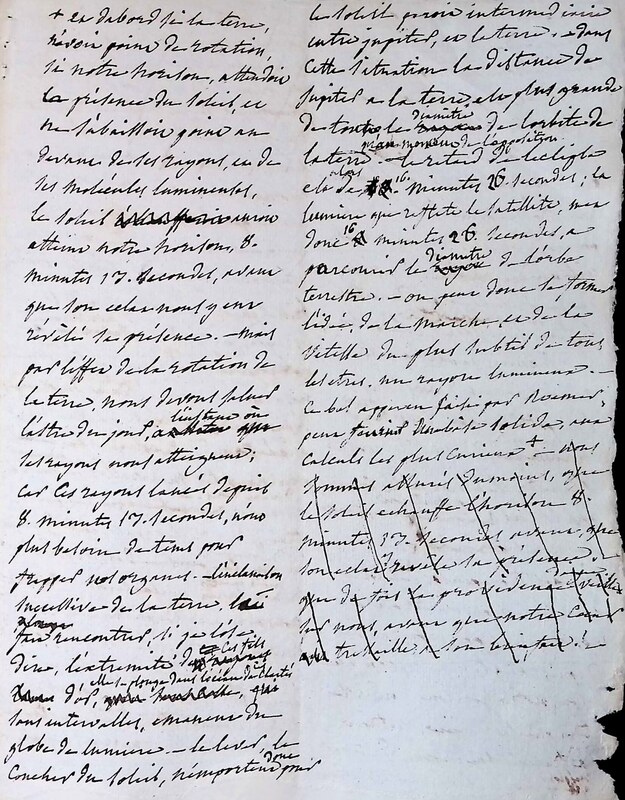 + et d'abord si la terre,
n'avoit point de rotation,
si notre horison, attendoit
la présence du soleil, et
ne s'abaissoit point au
devant de ses rayons, et de
ses molécules lumineuses,
le soleil auroit
atteint notre horison, 8.
minutes 17. secondes, avant
que son eclat nous y eut
révélé sa présence. - mais
par l'effet de la rotation de
la terre, nous devons saluer
l'instant où
l'astre du jour,
ses rayons nous atteignent;
car ces rayons lancés depuis
8. minutes 17. secondes, n'ont
plus besoin de tems pour
frapper nos organes. - l'inclinaison
successive de la terre, lui
fait rencontrer, si je l'ose
dire, l'extremité de ces fils
d'or, elle se plonge dans l'océan de clartés
sans intervalles, emanent du
globe de lumiere. - le lever, le
coucher du soleil, n'important donc pour
le soleil serait intermediaire
entre jupiter, et la terre. - dans
cette situation la distance de
jupiter a la terre, est plus grande
diametre
de tout le rayon de l'orbite de
qu'au moment de l'opposition.
la terre - le retard de l'eclipse
alors 16.
est de minutes 26. secondes; la
lumiere que reflete le satellite, met
donc 16 minutes 26. secondes, a
diametre
parcourir le rayon de l'orbe
terrestre. - on peut donc se former
l'idée, de la marche, et de la
vitesse du plus subtil de tous
les etres, un rayon lumineux. -
ce bel apperçu saisi par Roemer,
peut fournir une base solide, aux
calculs les plus curieux + - nous
sommes assurés du moins, que
le soleil echauffe l'horison 8.
minutes 17. secondes avant, que
son eclat revele sa présence. -
que de fois la providence veille
sur nous, avant que notre coeur
ait tressailli a son bienfait! -